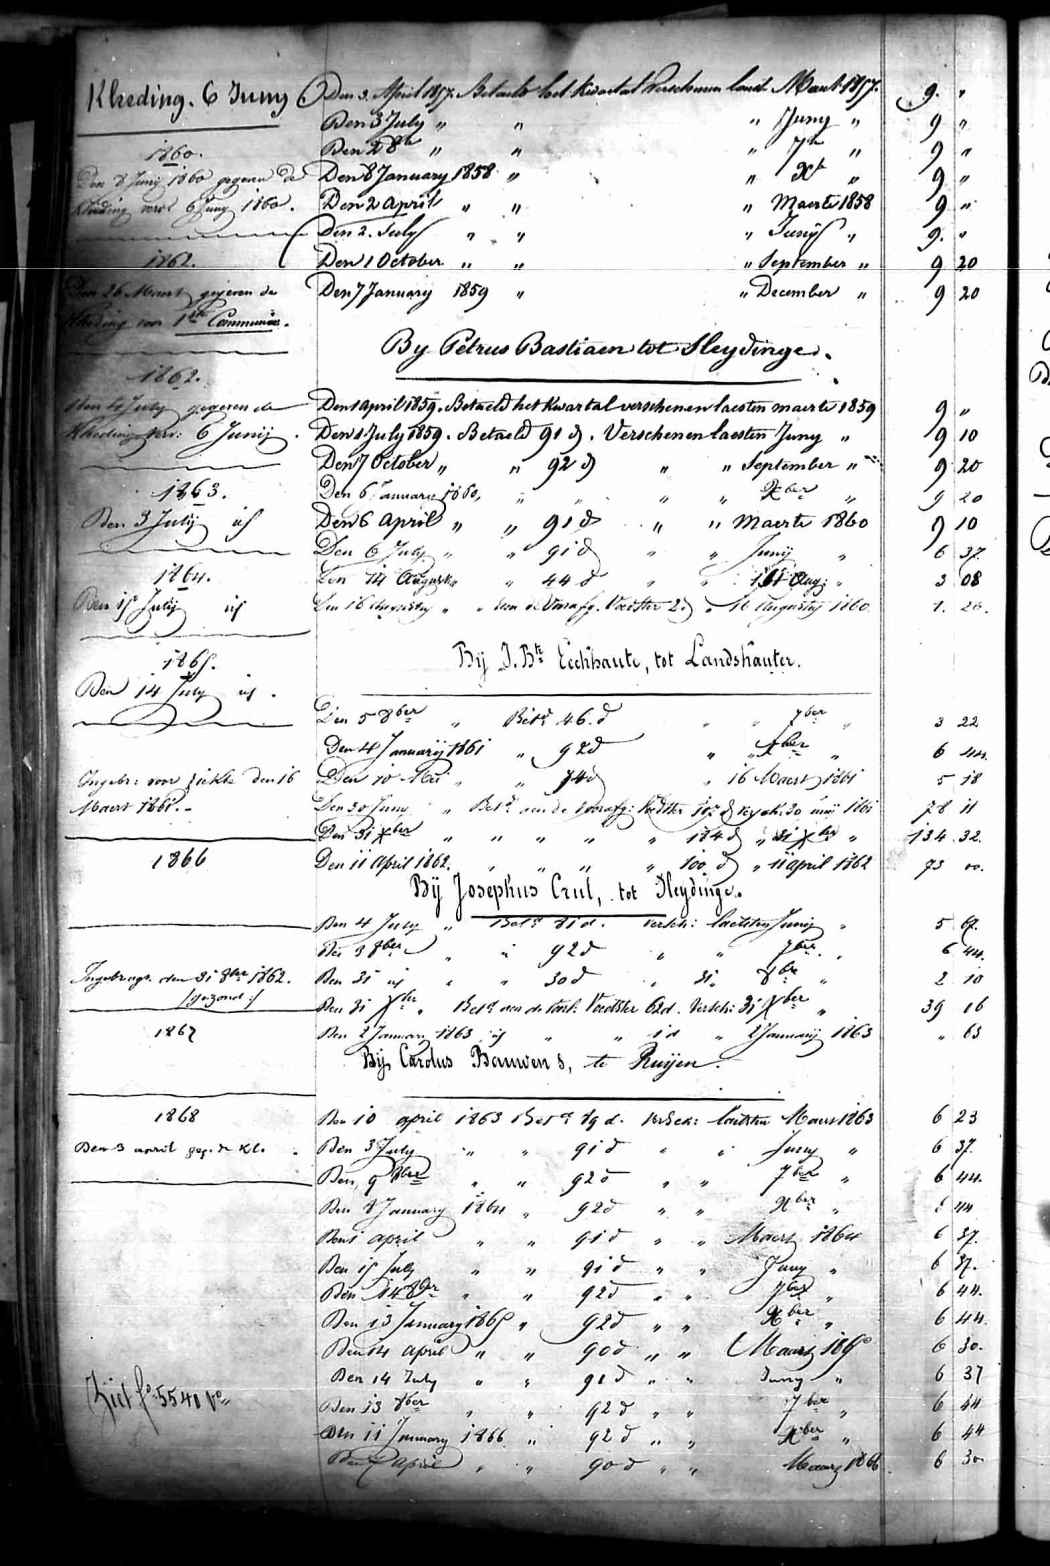 Kleeding. 6 Juny
1860.
Den 8 Junij 1860 gegeven de
kleeding voor 6 Juny 1860.
1862.
Den 26 Maart gegeven de
kleeding voor 1ste Communie.
1862.
Den July gegeven de
Kleeding ver: 6 Junij.
1863.
Den 3 Julij id
1864.
Den 15 Julij id
1865.
Den 14 July id.
Ingebr: voor ziekte den 16
Maert 1861.
1866
Ingebragt den 31 8ber 1862.
/gezond:/
1867
1868
Den 3 april geg. de Kl.
Ziet fo 5540 vo
Den 3. April 1857. Betaeld het Kwartaal Verschenen laest. Maert 1857. 9. "
Den 3 July " " " Juny " 9 "
Den 28 " " " 7br " 9 "
Den 8 January 1858 " " Xbr " 9 "
Den 2 april " " " Maerte 1858 9 "
Den 2. July " " " Junij " 9. "
Den 1 October " " " September " 9 20
Den 7 Januarij 1859 " " December " 9 20
By Petrus Bastiaen tot Sleydinge.
Den 1 april 1859. Betaeld het Kwartal verschenen laesten maerte 1859 9 "
Den 1 July 1859. Betaeld 91 d. Verschenen laesten Juny " 9 10
Den 7 October " " 92 d " " September " 9 20
Den 6 Januarie 1860, " " " " Xber " 9 20
Den 6 April " " 91 d " " Maerte 1860 9 10
Den 6 July " " 91 d " " Junij " 6 37
Den 14 August " " 44 d " " Aug: " 3 08
Den 16 " " aen de Voedster 2 d " 16 augusty 1860 1. 26.
Bij J. Bte Eeckhaute, tot Landshauter.
Den 5 8ber " Betd 46. d " " 7ber " 3 22
Den 4 Januarij 1861 " 92 d " " Xber " 6 44
Den 10 " " 74 d " 16 Maert 1861 5 18
Den 30 Juny " Betd aen de Voedster 107 d 30 1861 78 11
Den 31 Xber " " " " " 184 d " 31 Xber " 134 32.
Den 11 April 1862. " " " " " 100 d " 11 april 1862 73 00.
Bij Josephus Crul, tot Sleydinge.
Den 4 July " Betd 81 d. versch: laetsten Junij " 5 67.
Den 3 8ber " " 92 d " " 7ber " 6 44.
Den 31 id " " 30 d " 31 8ber " 2 10
Den 31 Xber " Betd aen de Voedster 62 d. Versch: 31 Xber " 39 16
Den 2 January 1863 id " " 1 d " 1 Januarij 1863 " 63
Bij Carolus Bauwens, te Ruijen.
Den 10 april 1863 Betd 89 d. versch: laetsten Maert 1863 6 23
Den 3 July " " 91 d " " Juny " 6 37.
Den 9 8ber " " 92 d " " 7ber " 6 44.
Den 8 January 1864 " 92 d " " Xber " 6 44
Den 1 april " " 91 d " " Maert 1864 6 37.
Den 15 July " " 91 d " " Juny " 6 37.
Den 14 8ber " " 92 d " " 7ber " 6 44.
Den 13 January 1865 " 92 d " " Xber " 6 44.
Den 14 april " " 90 d " " Maert 6 30.
Den 14 July " " 91 d " " Juny " 6 37
Den 13 8ber " " 92 d " " 7ber " 6 44
Den 11 January 1866 " 92 d " " Xber " 6 44
Den april " " 90 d " " Maart 1866 6 30